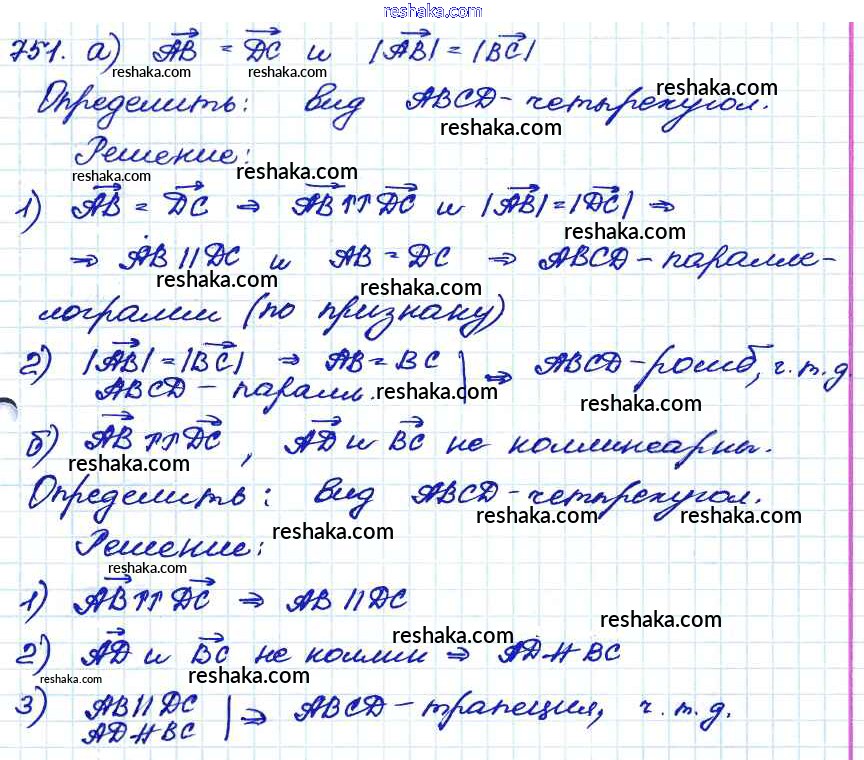 reshaka.com
751. а) AB = DC и |AB| = |BC|
reshaka.com reshaka.com reshaka.com
Определить: вид ABCD - четырехугол.
reshaka.com reshaka.com
Решение:
reshaka.com reshaka.com reshaka.com
1) AB = DC ⇒ AB↑↑DC и |AB| = |DC| ⇒
reshaka.com
⇒ AB || DC и AB = DC ⇒ ABCD - паралле-
reshaka.com reshaka.com
лограмм (по признаку)
2) |AB| = |BC| ⇒ AB = BC
ABCD - паралл. | ⇒ ABCD - ромб, ч.т.д.
reshaka.com reshaka.com
б) AB↑↑DC, AD и BC не коллинеарны.
reshaka.com reshaka.com
Определить: вид ABCD - четырехугол.
reshaka.com reshaka.com reshaka.com
Решение:
reshaka.com
1) AB↑↑DC ⇒ AB || DC
reshaka.com reshaka.com
2) AD и BC не коллин ⇒ AD ∦ BC
reshaka.com reshaka.com reshaka.com
3) AB || DC
AD ∦ BC | ⇒ ABCD - трапеция, ч.т.д.